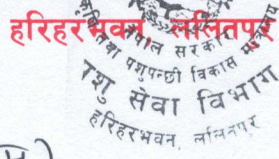 हरिहरभवन, ललितपुर
नेपाल सरकार
तथा पशुपन्छी विकास
पशु सेवा विभाग
हरिहरभवन, ललितपुर